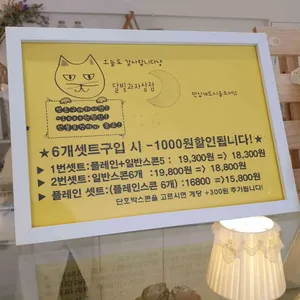 오늘도 감사합니다냥
달빛과자상점
★6개셋트구입 시 -1000원할인됩니다!★
▶ 1번셋트:플레인+일반스콘5 : 19,300원 => 18,300원
▶ 2번셋트:일반스콘6개 :19,800원 => 18,800원
▶ 플레인 셋트:(플레인스콘 6개) :16800 =>15,800원
단호박스콘을 고르시면 개당 +300원 추가됩니다!